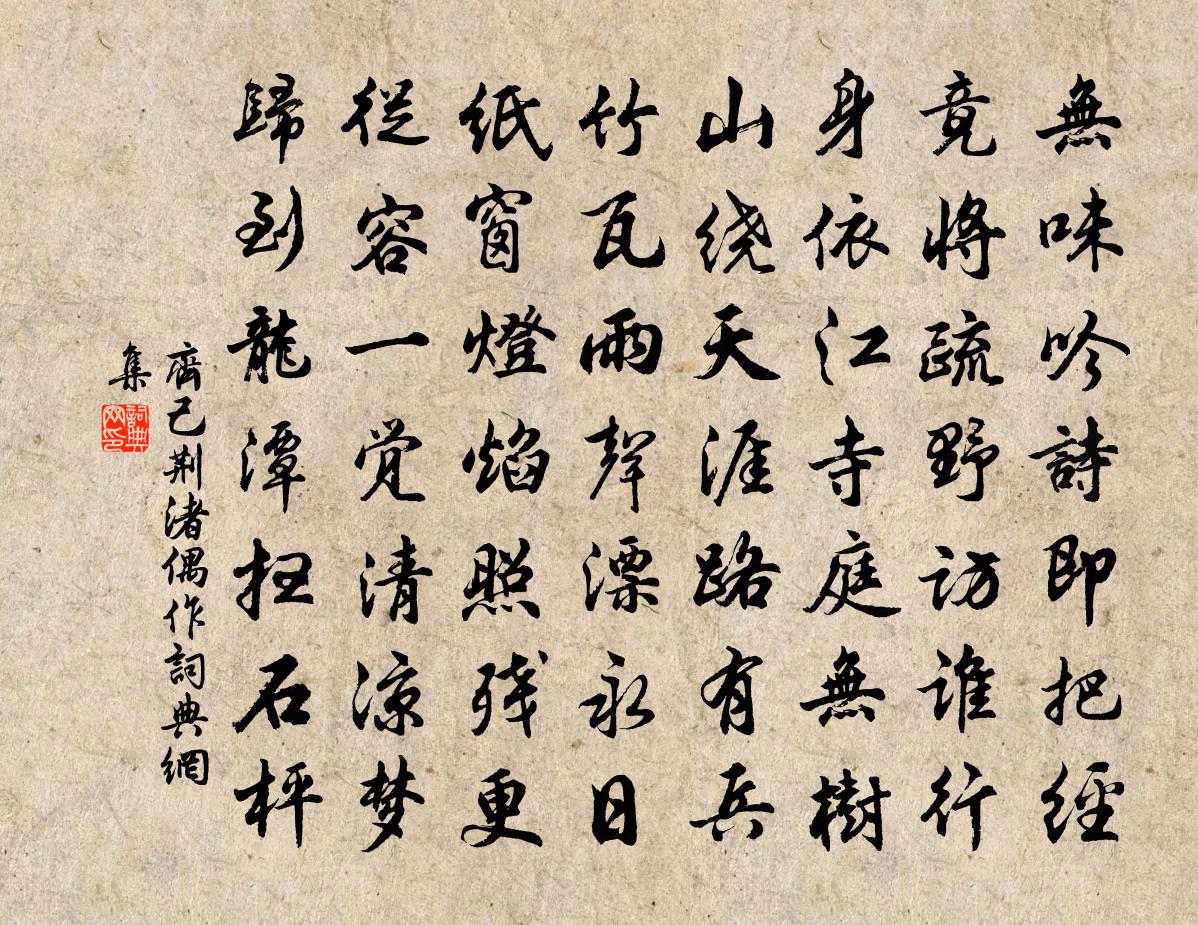 無味吟詩即把經
竟將疏野訪誰行
身依江寺庭無樹
山绕天涯路有兵
竹瓦雨聲漂永日
紙窗燈焰照残更
從容一觉清涼梦
歸到龍潭扫石枰
齊己荆渚偶作詞典網
集
詞典
网印